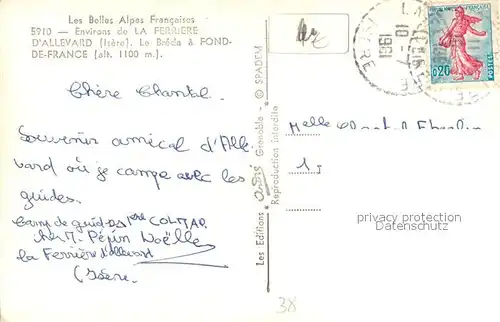 Les Belles Alpes Françaises
5910 — Environs de LA FERRIERE
D'ALLEVARD (Isère). Le Bréda à FOND-
DE-FRANCE (alt. 1100 m.).
Chère Chantal.
Souvenir amical d'Alle
vard où je campe avec les
guides.
Camp de guides 1ère COLMAR
chez M. Pépin Noëlle
la Ferrière d'allevard
(Isère)
Les Editions Grenoble - © SPADEM
Reproduction interdite
4€
ISERE
1961
0,20
POSTES
Melle Chantal
privacy protection
Datenschutz
38